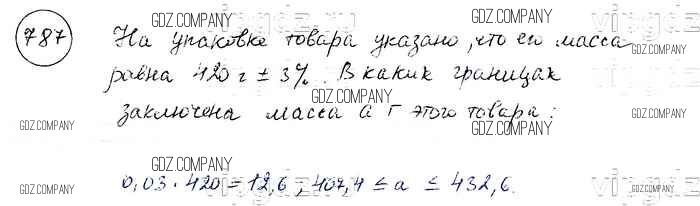 GDZ.COMPANY
787 На упаковке товара указано, что его масса
равна 420 г ± 3%. В каких границах
GDZ.COMPANY
заключена масса a г этого товара:
GDZ.COMPANY GDZ.COMPANY
GDZ.COMPANY
0,03 · 420 = 12,6 ; 407,4 ≤ a ≤ 432,6.
GDZ.COMPANY GDZ.COMPANY